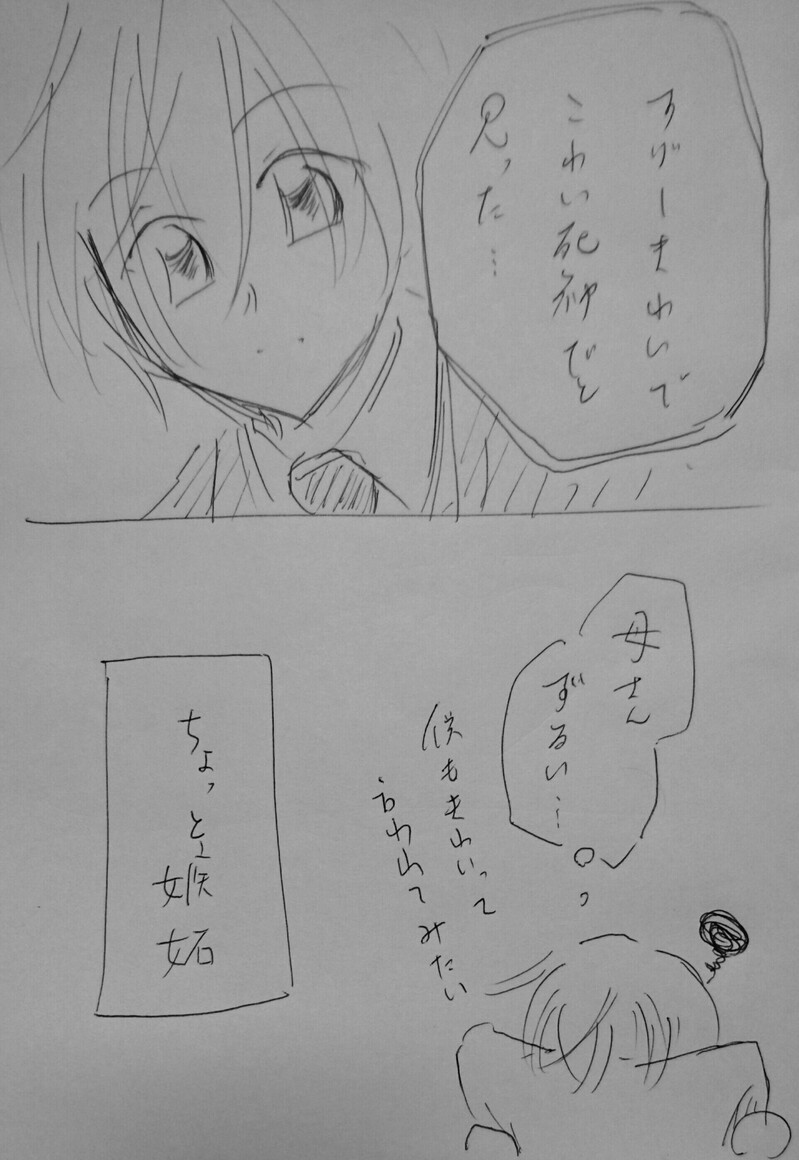 すげーきれいで
こわい死神だと
思った…
母さん
ずるい…
僕もきれいって
言われてみたい
ちょっと嫉妬